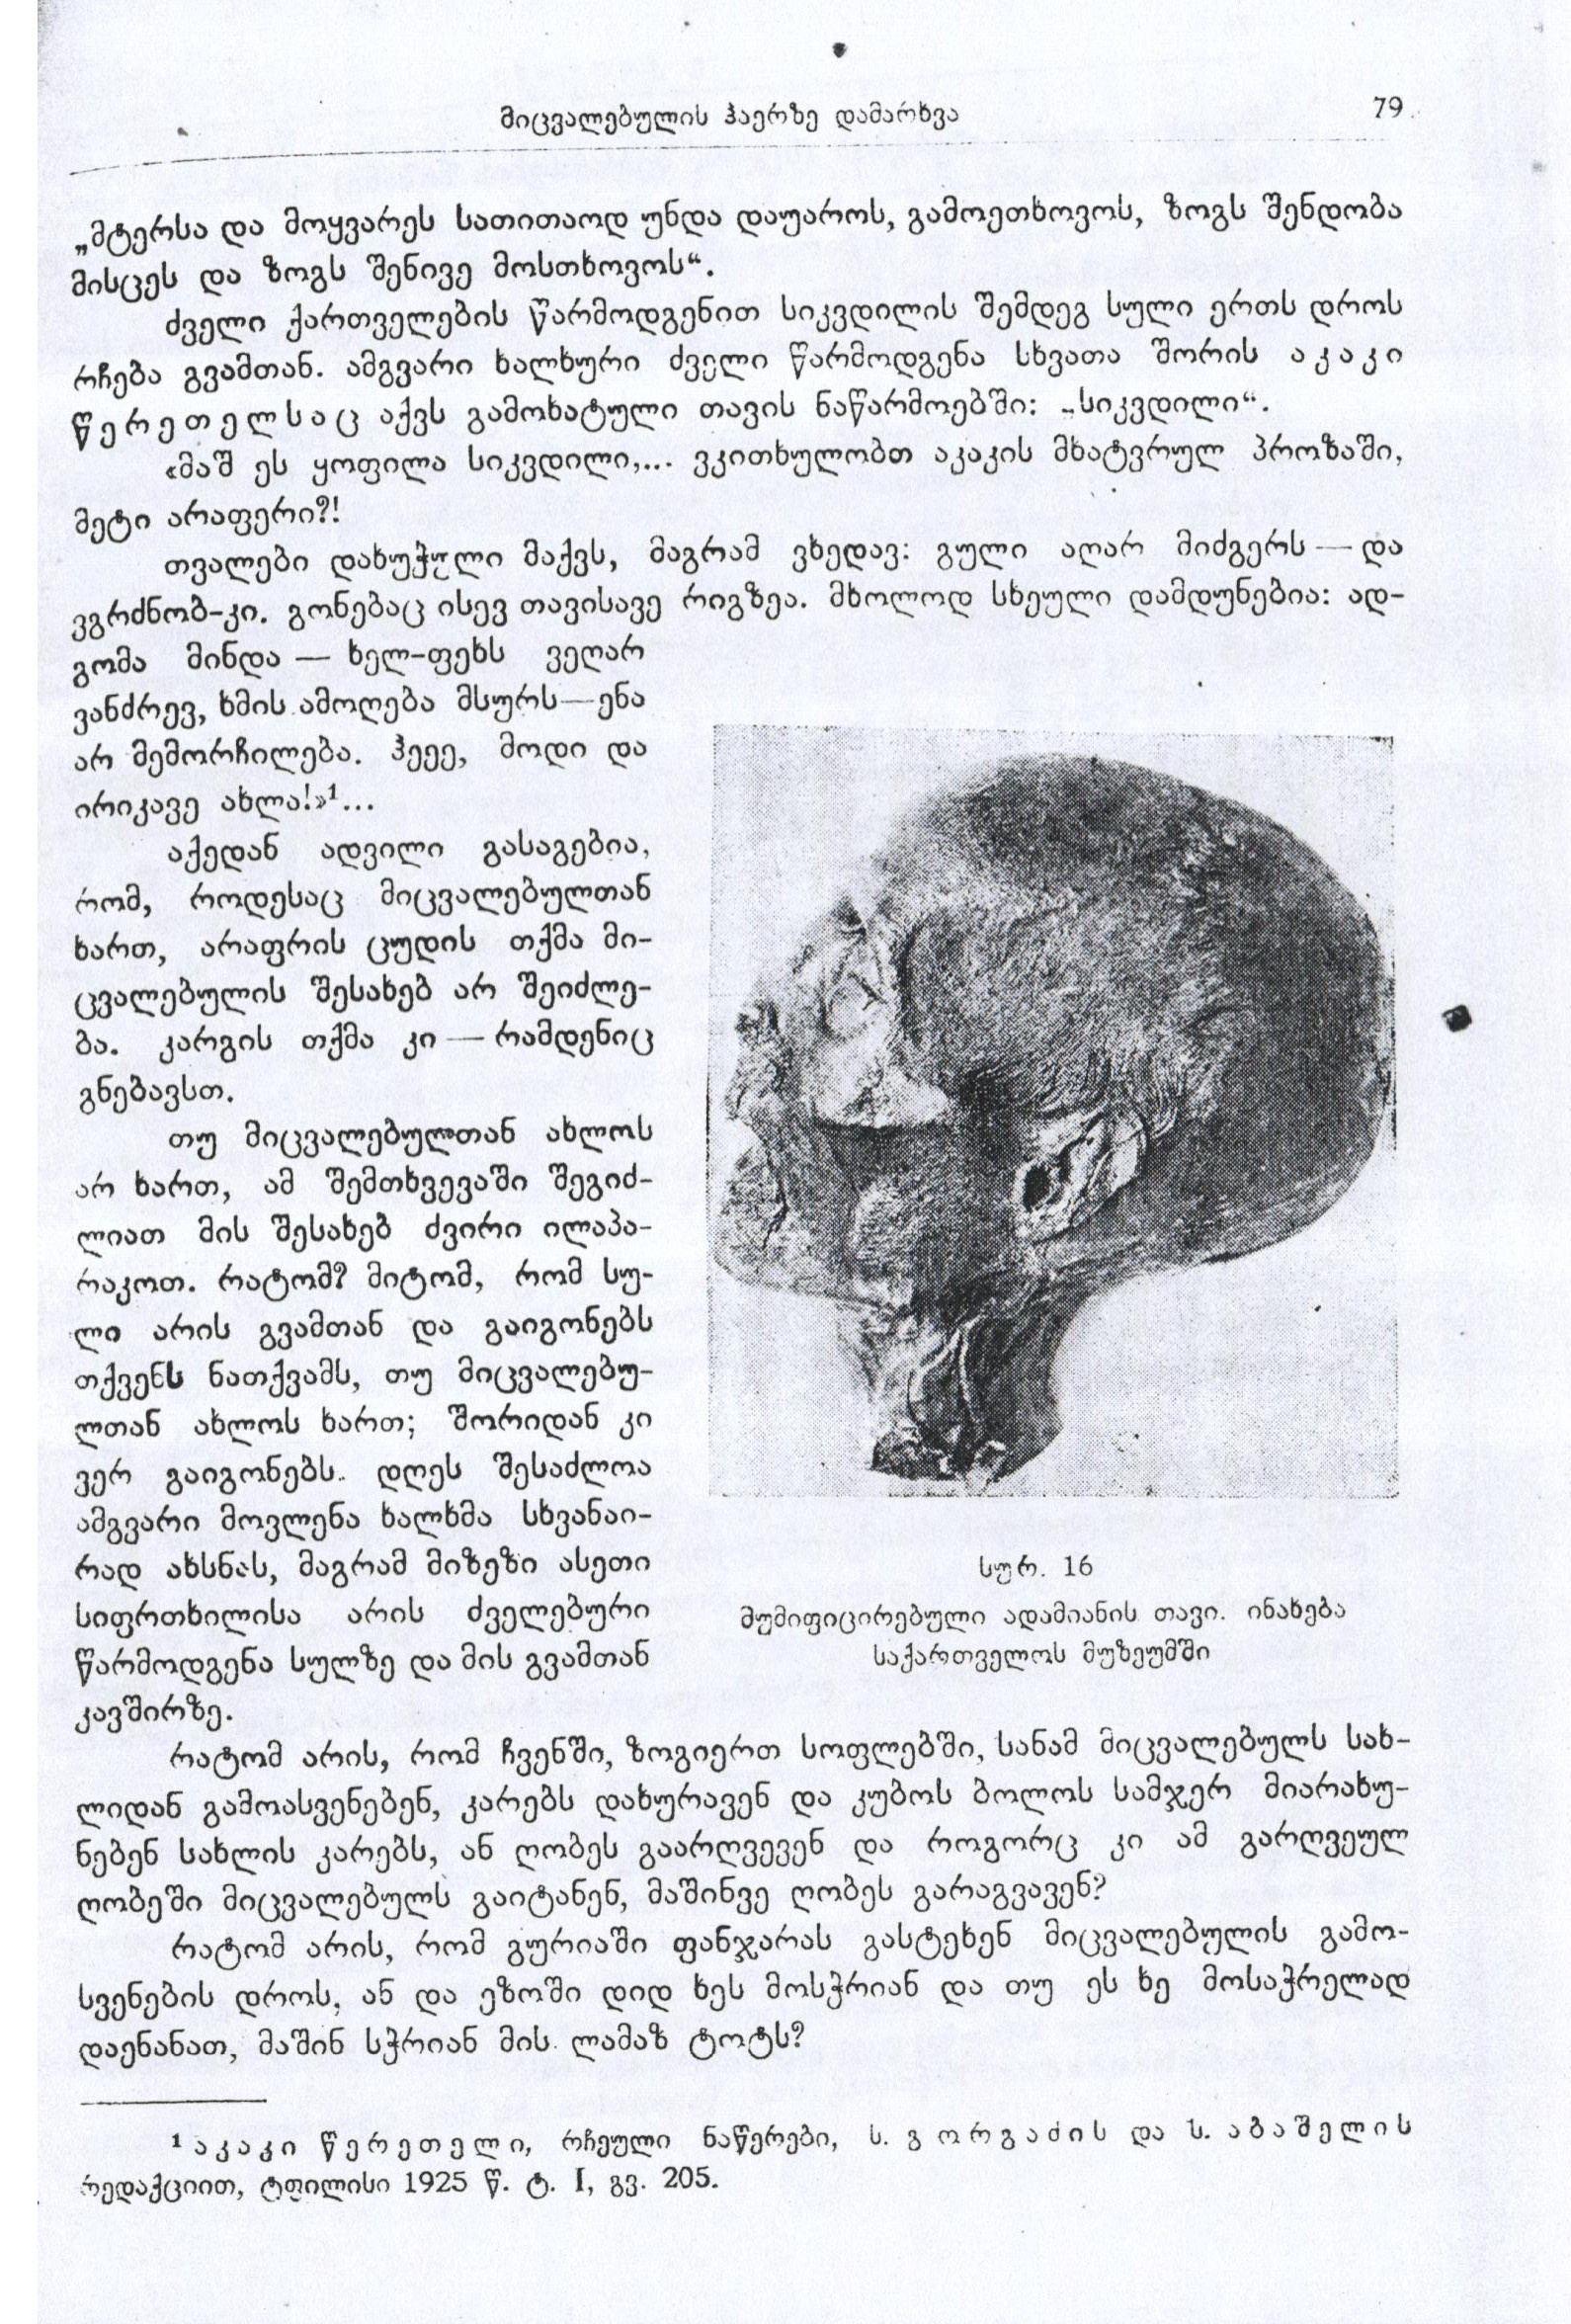 მიცვალებულის ჰაერზე დამარხვა
79
„მტერსა და მოყვარეს სათითაოდ უნდა დაუაროს, გამოეთხოვოს, ზოგს შენდობა
მისცეს და ზოგს შენივე მოსთხოვოს“.
ძველი ქართველების წარმოდგენით სიკვდილის შემდეგ სული ერთს დროს
რჩება გვამთან. ამგვარი ხალხური ძველი წარმოდგენა სხვათა შორის ა კ ა კ ი
წ ე რ ე თ ე ლ ს ა ც აქვს გამოხატული თავის ნაწარმოებში: „სიკვდილი“.
«მაშ ეს ყოფილა სიკვდილი,... ვკითხულობთ აკაკის მხატვრულ პროზაში,
მეტი არაფერი?!
თვალები დახუჭული მაქვს, მაგრამ ვხედავ: გული აღარ მიძგერს — და
ვგრძნობ-კი. გონებაც ისევ თავისავე რიგზეა. მხოლოდ სხეული დამდუნებია: ად-
გომა მინდა — ხელ-ფეხს ვეღარ
ვანძრევ, ხმის ამოღება მსურს—ენა
არ მემორჩილება. ჰეეე, მოდი და
ირიკავე ახლა!»¹...
აქედან ადვილი გასაგებია,
რომ, როდესაც მიცვალებულთან
ხართ, არაფრის ცუდის თქმა მი-
ცვალებულის შესახებ არ შეიძლე-
ბა. კარგის თქმა კი — რამდენიც
გნებავსთ.
თუ მიცვალებულთან ახლოს
არ ხართ, ამ შემთხვევაში შეგიძ-
ლიათ მის შესახებ ძვირი ილაპა-
რაკოთ. რატომ? მიტომ, რომ სუ-
ლი არის გვამთან და გაიგონებს
თქვენს ნათქვამს, თუ მიცვალებუ-
ლთან ახლოს ხართ; შორიდან კი
ვერ გაიგონებს. დღეს შესაძლოა
ამგვარი მოვლენა ხალხმა სხვანაი-
რად ახსნას, მაგრამ მიზეზი ასეთი
სიფრთხილისა არის ძველებური
წარმოდგენა სულზე და მის გვამთან
კავშირზე.
სურ. 16
მუმიფიცირებული ადამიანის თავი. ინახება
საქართველოს მუზეუმში
რატომ არის, რომ ჩვენში, ზოგიერთ სოფლებში, სანამ მიცვალებულს სახ-
ლიდან გამოასვენებენ, კარებს დახურავენ და კუბოს ბოლოს სამჯერ მიარახუ-
ნებენ სახლის კარებს, ან ღობეს გაარღვევენ და როგორც კი ამ გარღვეულ
ღობეში მიცვალებულს გაიტანენ, მაშინვე ღობეს გარაგვავენ?
რატომ არის, რომ გურიაში ფანჯარას გასტეხენ მიცვალებულის გამო-
სვენების დროს, ან და ეზოში დიდ ხეს მოსჭრიან და თუ ეს ხე მოსაჭრელად
დაენანათ, მაშინ სჭრიან მის ლამაზ ტოტს?
¹ ა კ ა კ ი წ ე რ ე თ ე ლ ი, რჩეული ნაწერები, ს. გ ო რ გ ა ძ ი ს და ს. ა ბ ა შ ე ლ ი ს
რედაქციით, ტფილისი 1925 წ. ტ. I, გვ. 205.